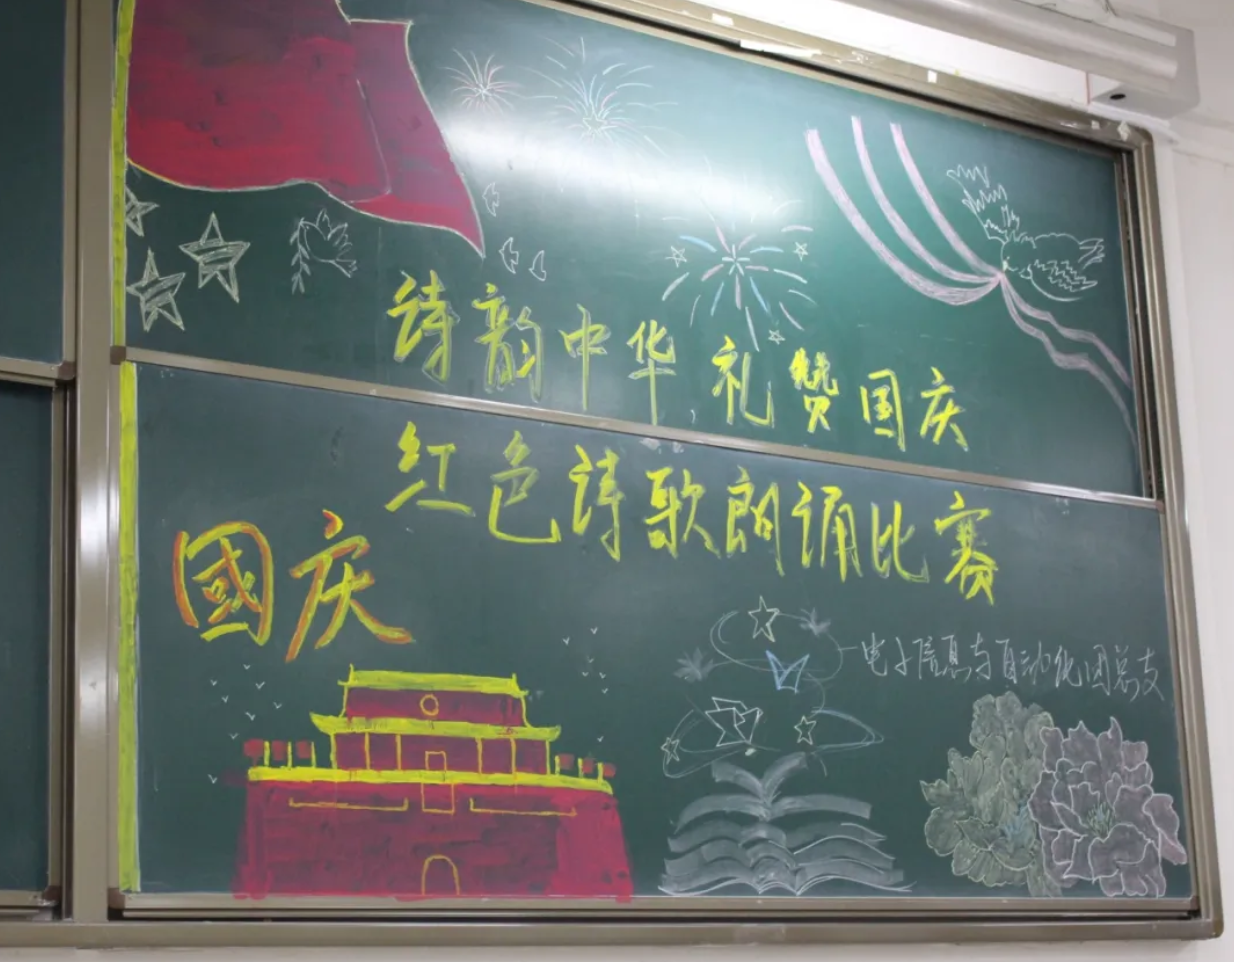 诗韵中华 礼赞国庆
红色诗歌朗诵比赛
國庆
电子信息与自动化团总支